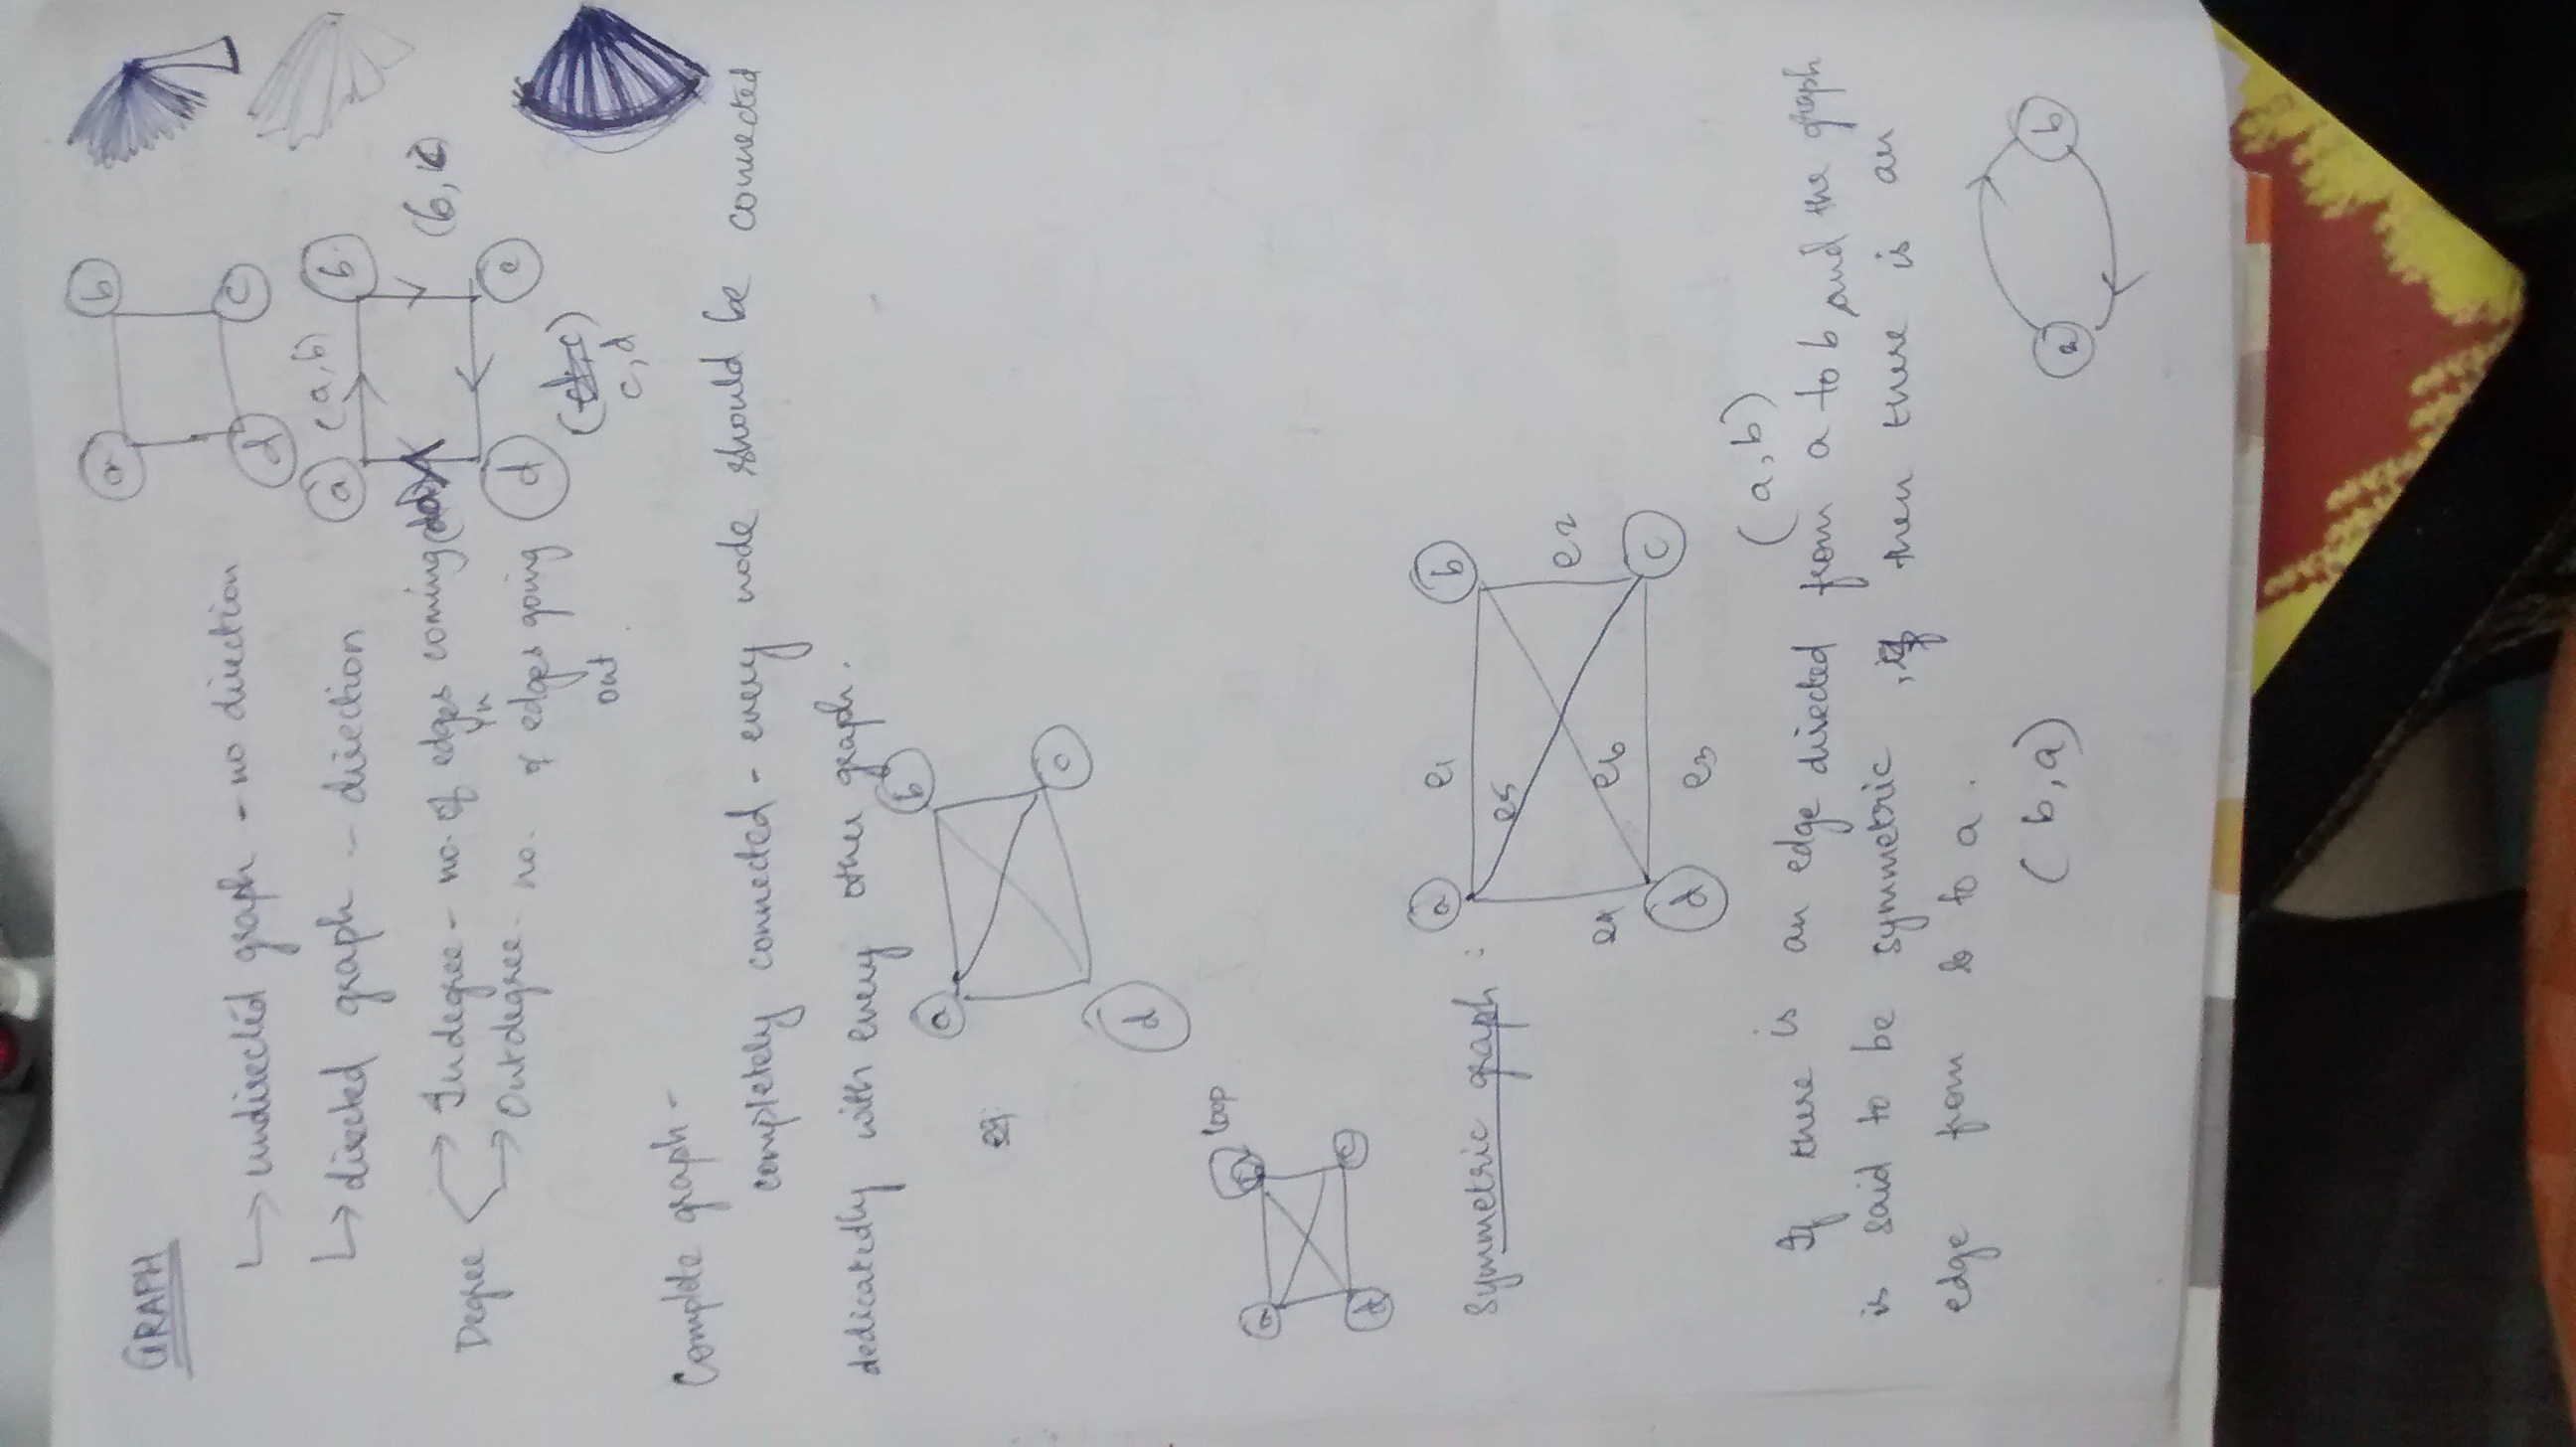 GRAPH
a b
↳ undirected graph - no direction
d c
↳ directed graph - direction
a (a,b) b
Degree → Indegree - no. of edges coming in
(b, c)
→ Outdegree - no. of edges going out
d c
(c, d)
Complete graph -
completely connected - every node should be connected
dedicatedly with every other graph.
a b
eg:
c
d
loop
a b
d c
Symmetric graph :
a e1 b
e5
e2
e4 e6
d e3 c
(a,b)
If there is an edge directed from a to b and the graph
is said to be symmetric, then there is an
edge from b to a.
(b,a)
a b